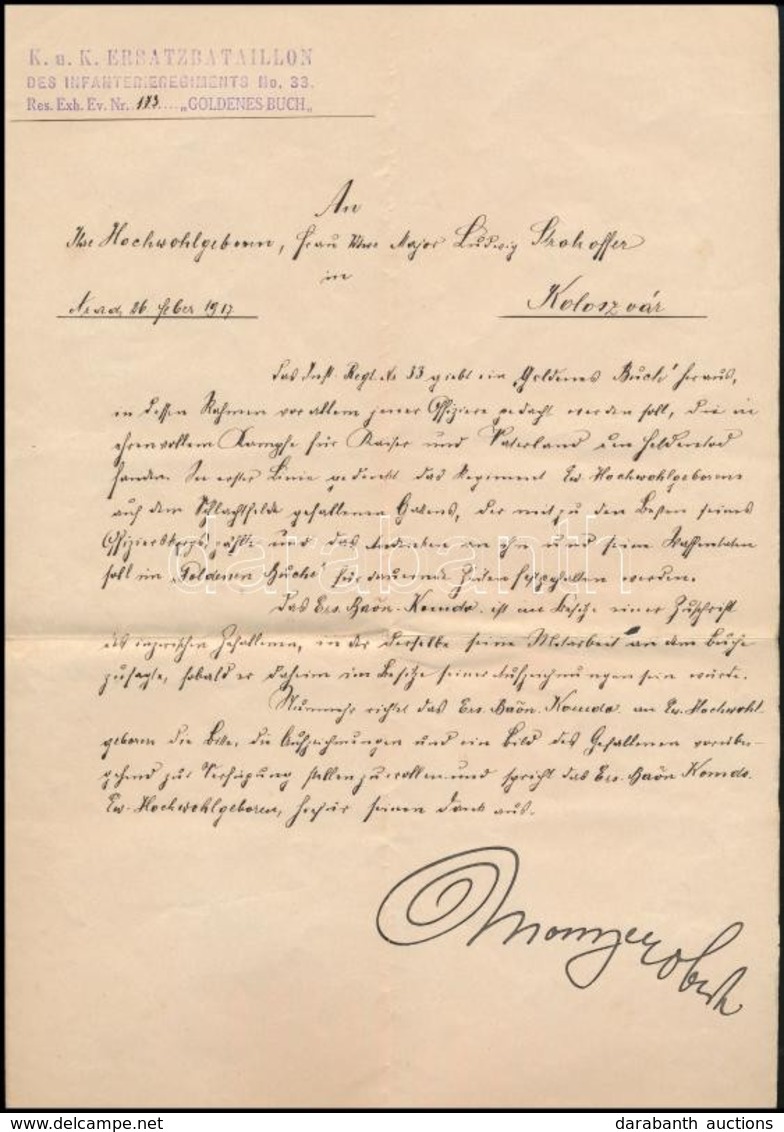 K. u. K. ERSATZBATAILLON
DES INFANTERIEREGIMENTS No. 33.
Res. Exh. Ev. Nr. 173 „GOLDENES BUCH„
An
Ihre Hochwohlgeboren, Frau Wwe Major Ludwig Strohoffer
in
Arad, 26 feber 1917
Koloszvár
Das Inft. Regt. No 33 giebt ein „Goldenes Buch" heraus,
in dessen Rahmen vor allem jener Offiziere gedacht werden soll, die im
ehrenvollem Kampfe für Kaiser und Vaterland den Heldentod
fanden. In erster Linie gedenkt das Regiment Ew. Hochwohlgeborens
auf dem Schlachtfelde gefallenen Gatten, der mit zu den Besten seines
Offizierskorps zählte und das Andenken an ihn und seine Waffentaten
soll im „Goldenen Buche" für dauernde Zeiten festgehalten werden.
Das Ers. Baön. Komdo. ist im Besitze einer Zuschrift
des Gefallenen, in der derselbe seine Mitarbeit an dem Buche
zusagte, sobald er daheim im Besitze seiner Aufzeichnungen sein würde.
Nunmehr richtet das Ers. Baön. Komdo. an Ew. Hochwohl-
geboren die Bitte, die Aufzeichnungen und ein Bild des Gefallenen vorüber-
gehend zur Verfügung stellen zu wollen und spricht das Ers. Baön Komdo.
Ew. Hochwohlgeboren, hiefür seinen Dank aus.
darabanth
www.darabanth.com
darabanth auctions